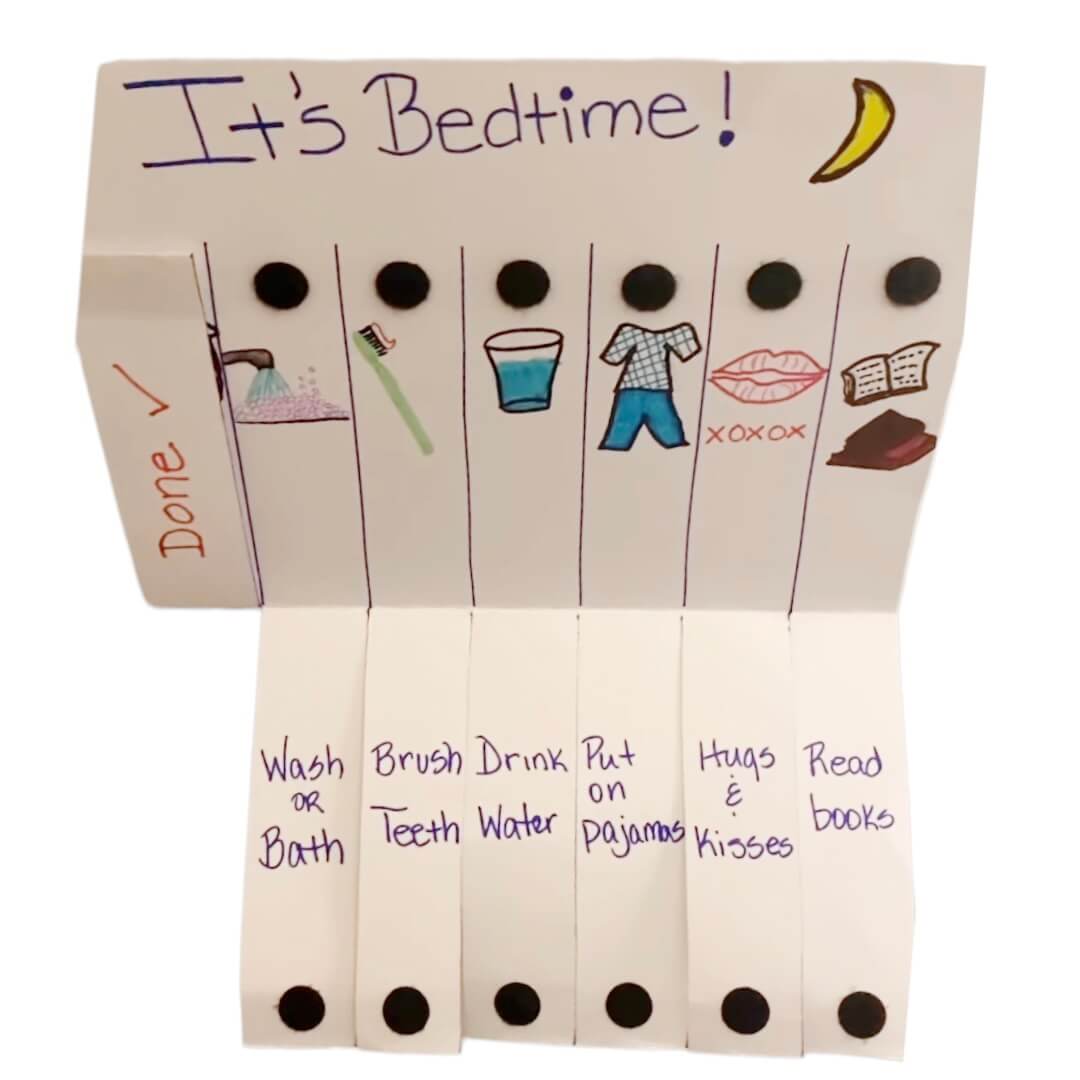 It's Bedtime!
Done ✓
XOXOX
Wash
OR
Bath
Brush
Teeth
Drink
Water
Put
on
pajamas
Hugs
&
Kisses
Read
books